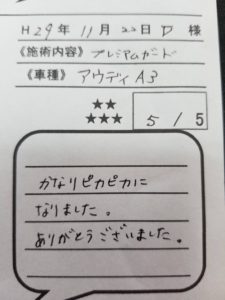 H29年 11月 22日 D 様
《施術内容》 プレミアムガード
《車種》 アウディ A3
★★
★★★ 5 / 5
かなりピカピカに
なりました。
ありがとうございました。